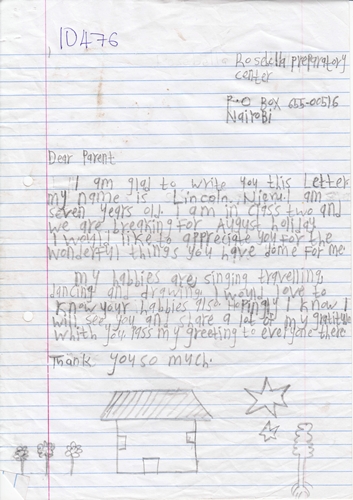 10476
Rosdella preparatory
center
P.O BOX 655-00516
Nairobi
Dear Parent
I am glad to write you this Letter
my name is Lincoln Njeru I am
seven years old. I am in class two and
we are breaking for August holiday
I would like to appreciate you for the
wonderful things you have done for me.
my habbies are singing travelling,
dancing and drawing. I would love to
know your habbies also hopingly I know I
will see you and share a lot of my gratitude
whith you. Pass my greeting to everyone there
Thank you so much.